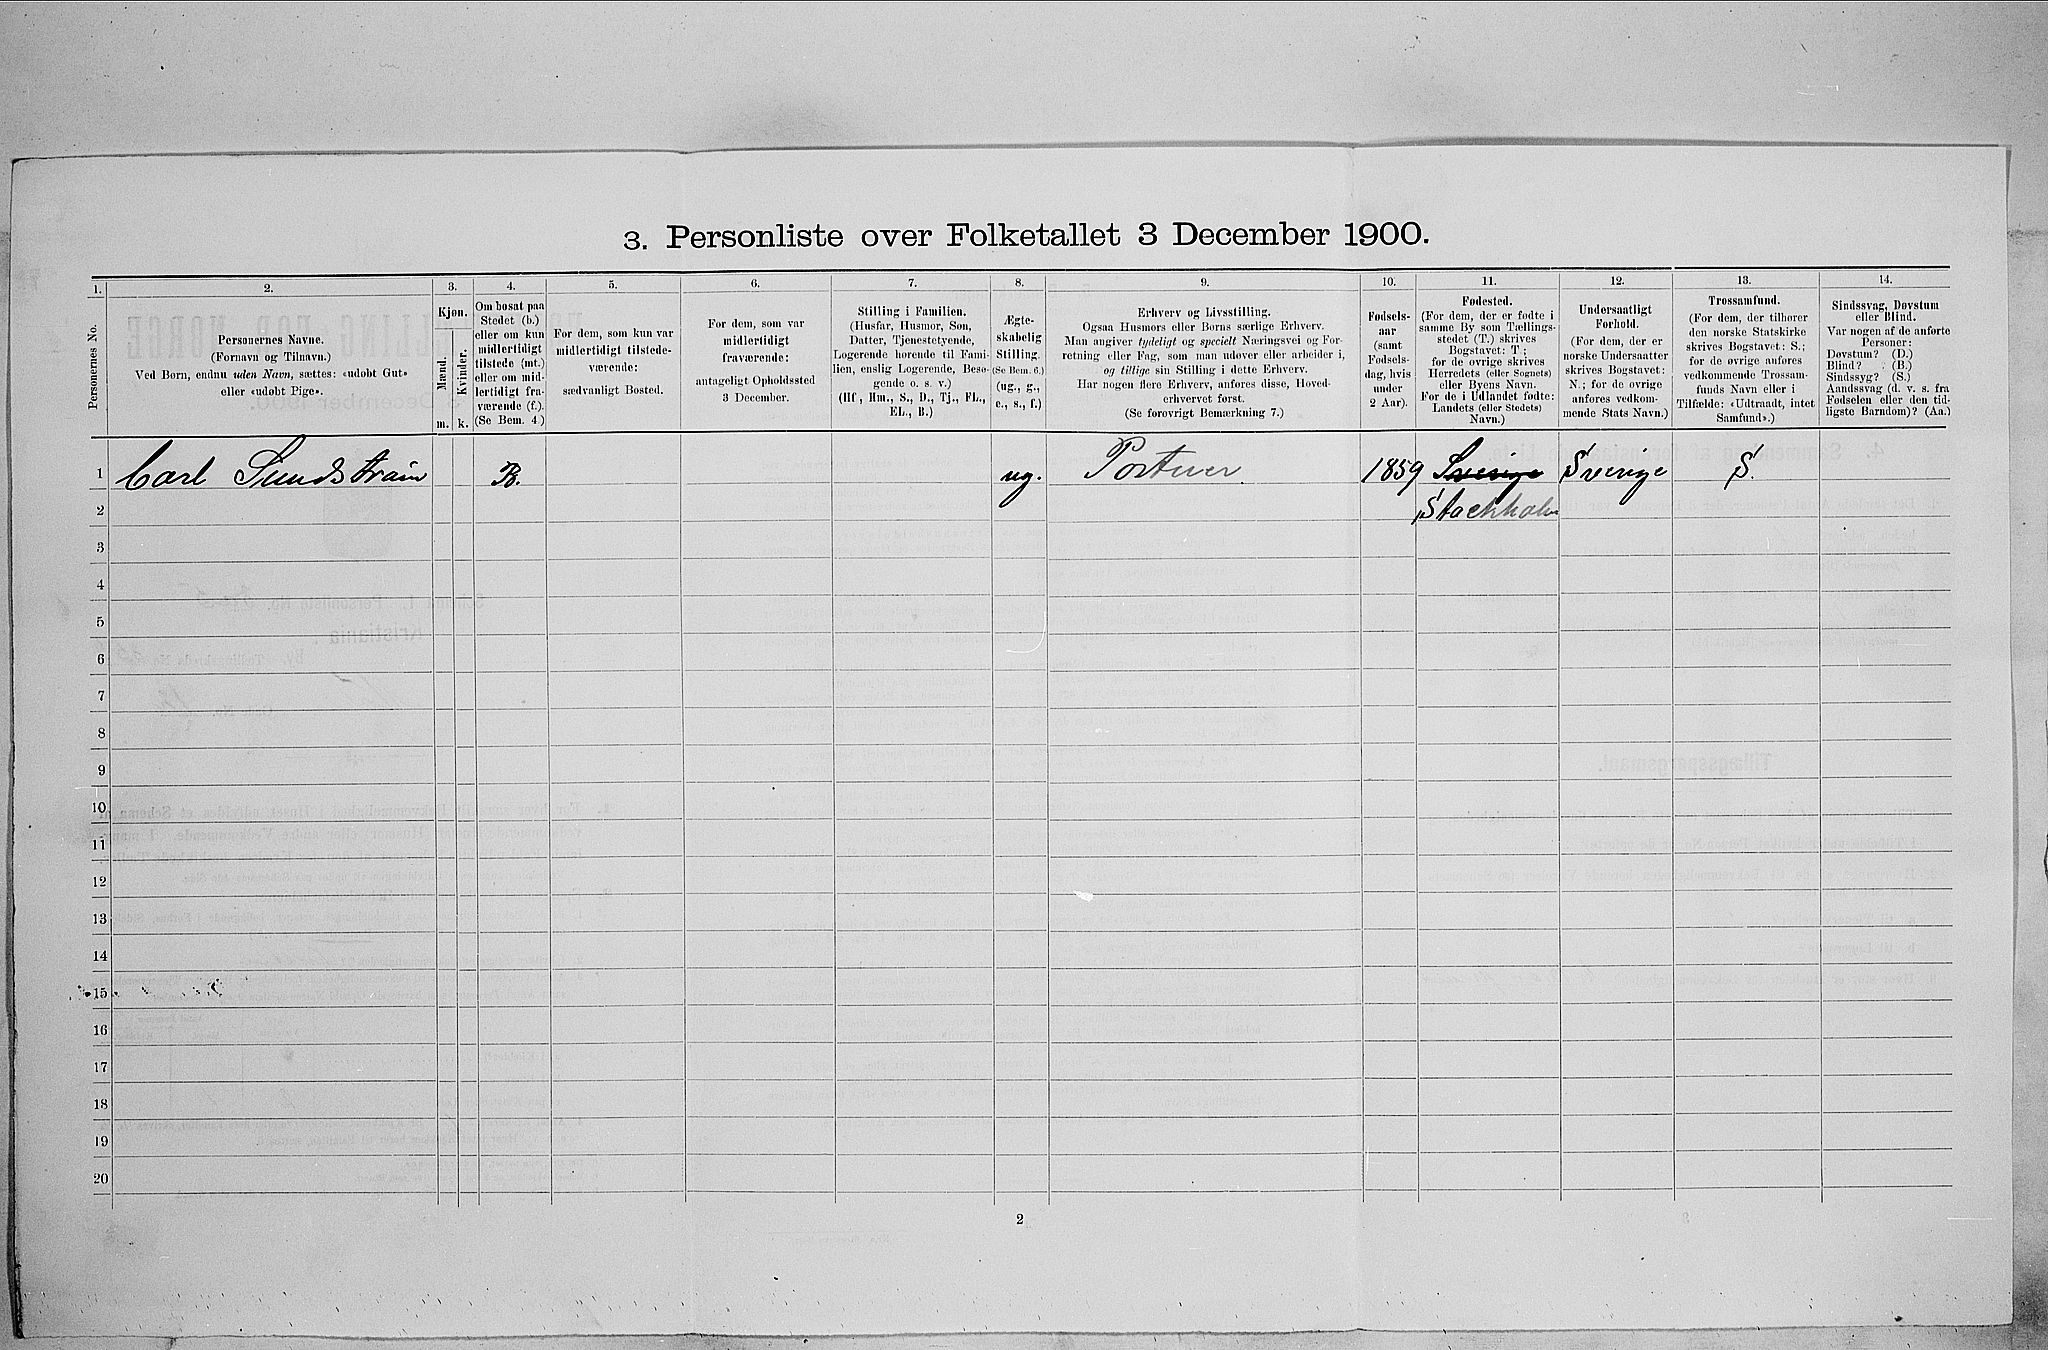 3. Personliste over Folketallet 3 December 1900.
1.
Personernes No.
2.
Personernes Navne.
(Fornavn og Tilnavn.)
Ved Børn, endnu uden Navn, sættes: «udøbt Gut»
eller «udøbt Pige».
3.
Kjøn.
Mænd.
Kvinder.
m.
k.
4.
Om bosat paa
Stedet (b.)
eller om kun
midlertidigt
tilstede (mt.)
eller om mid-
lertidigt fra-
værende (f.).
(Se Bem. 4.)
5.
For dem, som kun var
midlertidigt tilstede-
værende:
sædvanligt Bosted.
6.
For dem, som var
midlertidigt
fraværende:
antageligt Opholdssted
3 December.
7.
Stilling i Familien.
(Husfar, Husmor, Søn,
Datter, Tjenestetyende,
Logerende hørende til Fami-
lien, enslig Logerende, Besø-
gende o. s. v.)
(Hf, Hm., S., D., Tj., FL.,
EL., B.)
8.
Ægte-
skabelig
Stilling.
(Se Bem. 6.)
(ug., g.,
e., s., f.)
9.
Erhverv og Livsstilling.
Ogsaa Husmors eller Børns særlige Erhverv.
Man angiver tydeligt og specielt Næringsvei og For-
retning eller Fag, som man udøver eller arbeider i,
og tillige sin Stilling i dette Erhverv.
Har nogen flere Erhverv, anføres disse, Hoved-
erhvervet først.
(Se forøvrigt Bemærkning 7.)
10.
Fødsels-
aar
(samt
Fødsels-
dag, hvis
under
2 Aar).
11.
Fødested.
(For dem, der er fødte i
samme By som Tællings-
stedet (T.) skrives
Bogstavet: T;
for de øvrige skrives
Herredets (eller Sognets)
eller Byens Navn.
For de i Udlandet fødte:
Landets (eller Stedets)
Navn.)
12.
Undersaatligt
Forhold.
(For dem, der er
norske Undersaatter
skrives Bogstavet:
N.; for de øvrige
anføres vedkom-
mende Stats Navn.)
13.
Trossamfund.
(For dem, der tilhører
den norske Statskirke
skrives Bogstavet: S.;
for de øvrige anføres
vedkommende Trossam-
funds Navn eller i
Tilfælde: «Udtraadt, intet
Samfund».)
14.
Sindssvag, Døvstum
eller Blind.
Var nogen af de anførte
Personer:
Døvstum? (D.)
Blind? (B.)
Sindssyg? (S.)
Aandssvag (d. v. s. fra
Fødselen eller den tid-
ligste Barndom)? (Aa.)
1 Carl Sundstrøm B. ug. 1859 Sverige Sverige S.
2 Stockholm
3
4
5
6
7
8
9
10
11
12
13
14
15
16
17
18
19
20
2